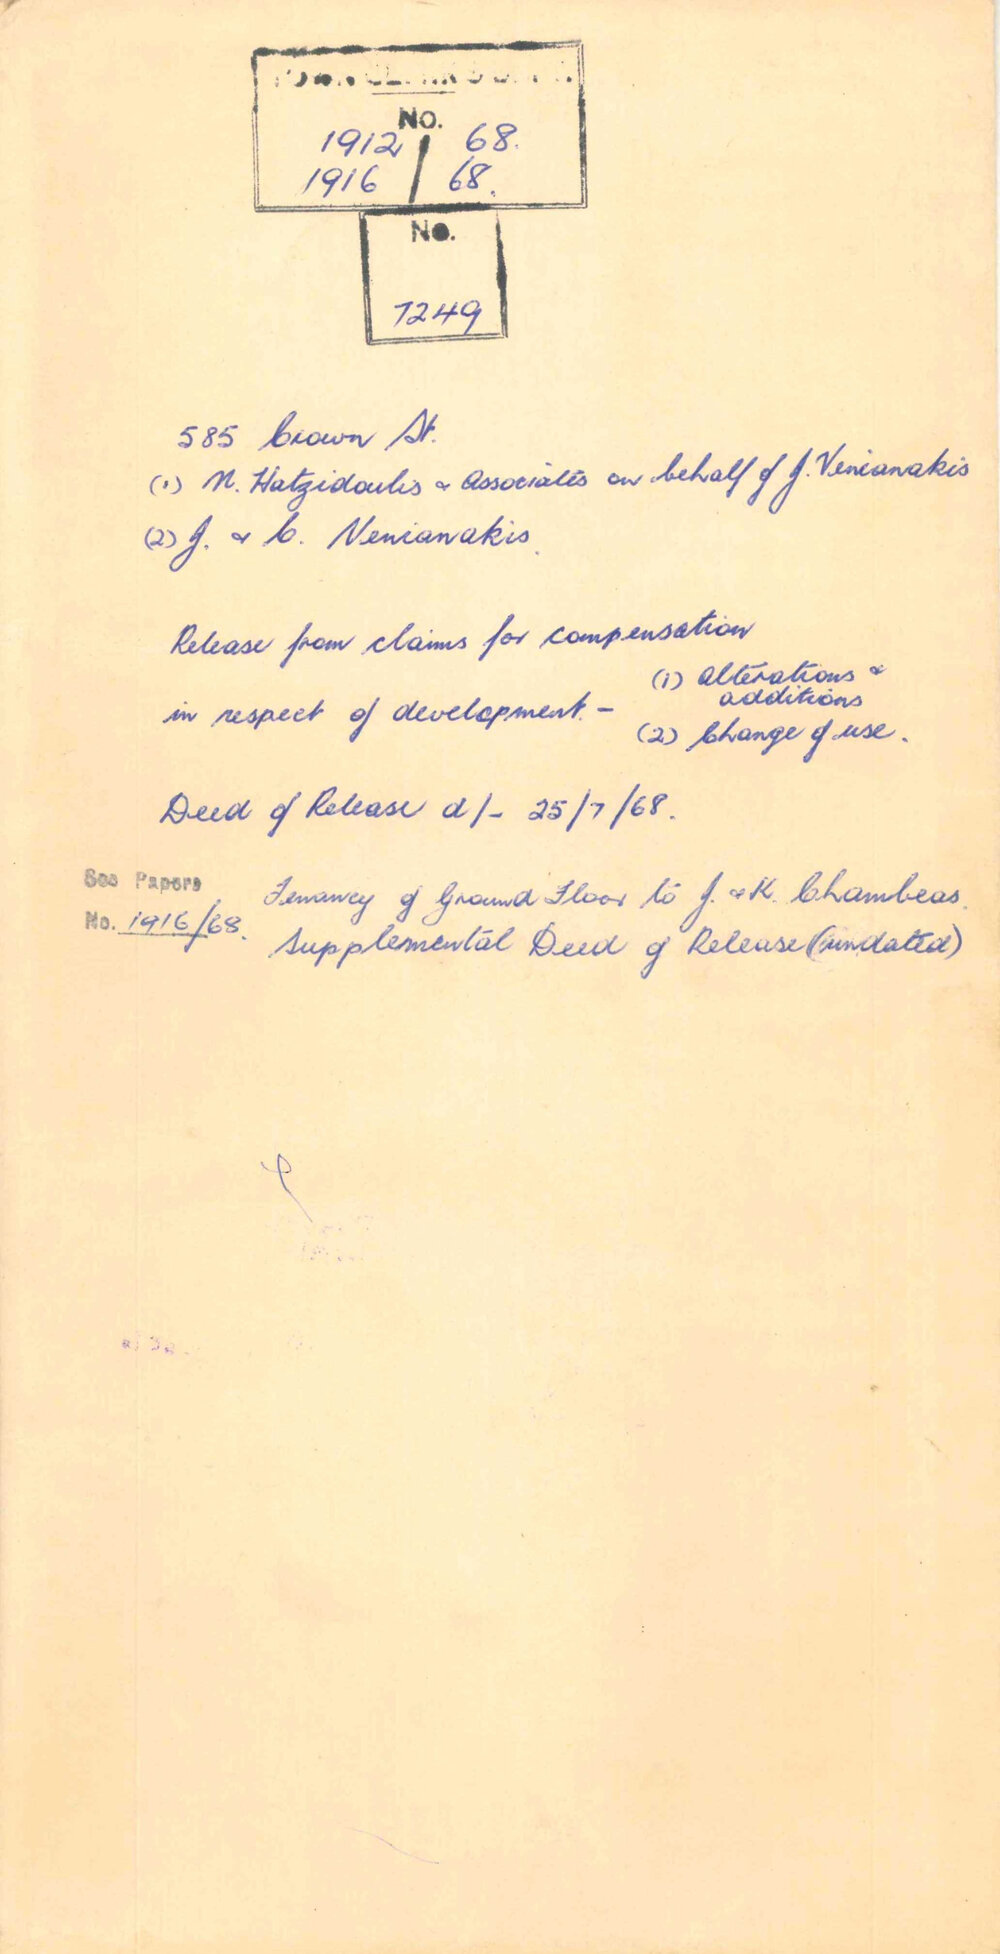 No.
1912 / 68.
1916 / 68.
No.
7249
585 Crown St.
(1) N. Hatzidoulis & Associates on behalf of J. Venianakis
(2) J. & C. Venianakis
Release from claims for compensation
in respect of development. - (1) Alterations &
additions
(2) Change of use.
Deed of Release d/- 25/7/68.
See Papers
No. 1916/68.
Tenancy of Ground Floor to J. & K. Chambeas.
Supplemental Deed of Release (undated)